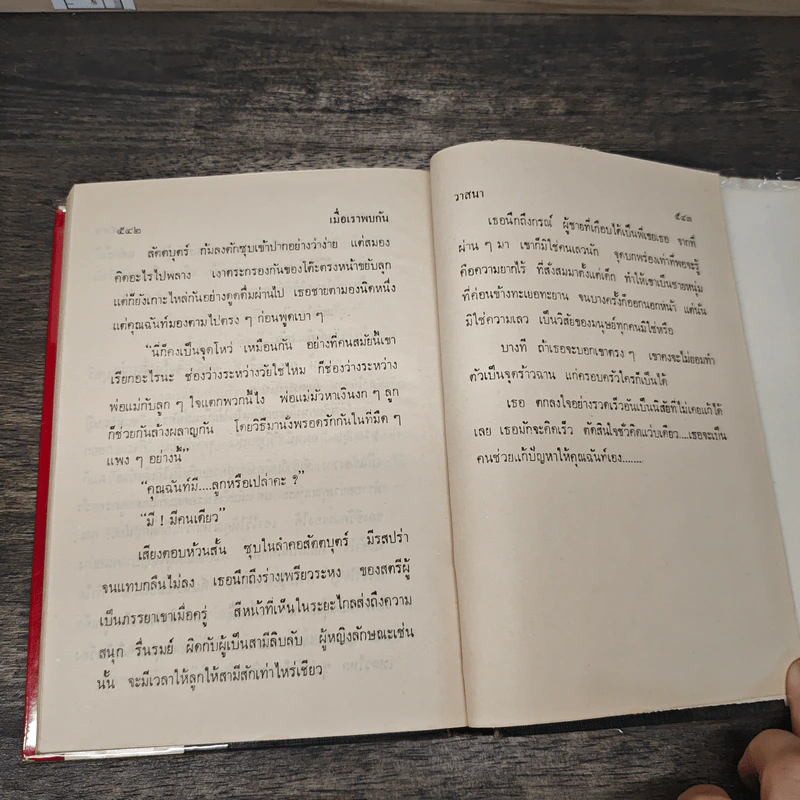 ๕๔๒ เมื่อเราพบกัน
สัตตบุตร์ ก้มลงตักซุบเข้าปากอย่างว่าง่าย แต่สมอง
คิดอะไรไปพลาง เงาตระกรองกันของโต๊ะตรงหน้าขยับลุก
แต่ก็ยังเกาะไหล่กันอย่างดูดดื่มผ่านไป เธอชายตามองนิดหนึ่ง
แต่คุณฉันท์มองตามไปตรง ๆ ก่อนพูดเบา ๆ
“นี่ก็คงเป็นจุดโหว่ เหมือนกัน อย่างที่คนสมัยนี้เขา
เรียกอะไรนะ ช่องว่างระหว่างวัยใช่ไหม ก็ช่องว่างระหว่าง
พ่อแม่กับลูก ๆ ใจแตกพวกนี้ไง พ่อแม่มัวหาเงินงก ๆ ลูก
ก็ช่วยกันล้างผลาญกัน โดยวิธีมานั่งพรอดรักกันในที่มืด ๆ
แพง ๆ อย่างนี้”
“คุณฉันท์มี....ลูกหรือเปล่าคะ ?”
“มี ! มีคนเดียว”
เสียงตอบห้วนสั้น ซุบในลำคอสัตตบุตร์ มีรสปร่า
จนแทบกลืนไม่ลง เธอนึกถึงร่างเพรียวระหง ของสตรีผู้
เป็นภรรยาเขาเมื่อครู่ สีหน้าที่เห็นในระยะไกลส่งถึงความ
สนุก รื่นรมย์ ผิดกับผู้เป็นสามีลิบลับ ผู้หญิงลักษณะเช่น
นั้น จะมีเวลาให้ลูกให้สามีสักเท่าไหร่เชียว
วาสนา ๕๔๓
เธอนึกถึงกรณ์ ผู้ชายที่เกือบได้เป็นพี่เขยเธอ จากที่
ผ่าน ๆ มา เขาก็มิใช่คนเลวนัก จุดบกพร่องเท่าที่พอจะรู้
คือความยากไร้ ที่สั่งสมมาตั้งแต่เด็ก ทำให้เขาเป็นชายหนุ่ม
ที่ค่อนข้างทะเยอทะยาน จนบางครั้งก็ออกนอกหน้า แต่นั่น
มิใช่ความเลว เป็นวิสัยของมนุษย์ทุกคนมิใช่หรือ
บางที ถ้าเธอจะบอกเขาตรง ๆ เขาคงจะไม่ยอมทำ
ตัวเป็นจุดร้าวฉาน แก่ครอบครัวใครก็เป็นได้
เธอ ตกลงใจอย่างรวดเร็วอันเป็นนิสัยที่ไม่เคยแก้ได้
เลย เธอนักจะคิดเร็ว ตัดสินใจชั่วคิดแว่บเดียว....เธอจะเป็น
คนช่วยแก้ปัญหาให้คุณฉันท์เอง........